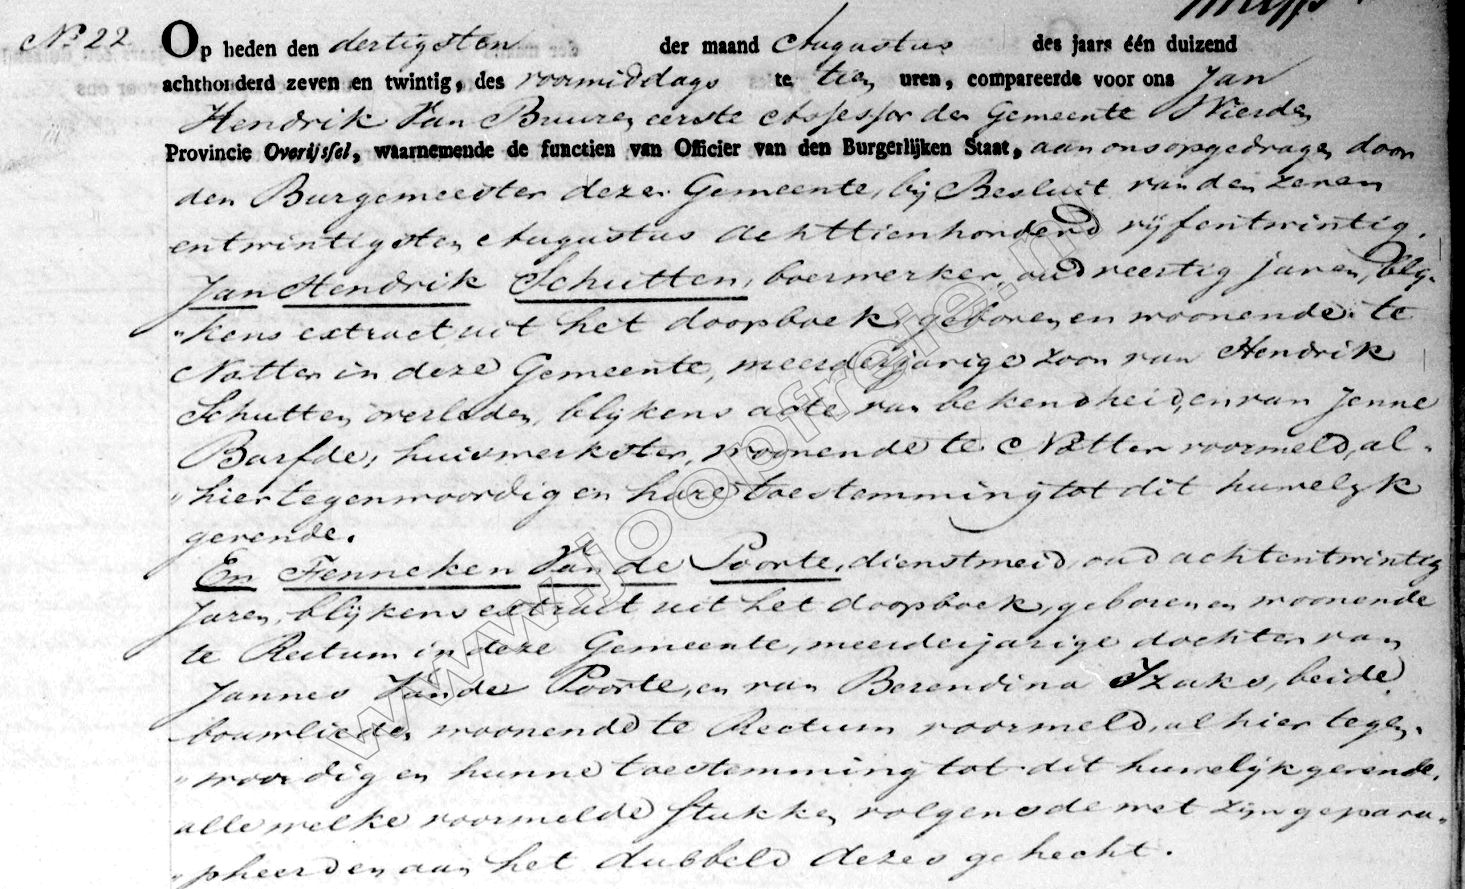 No 22 Op heden den dertigsten der maand Augustus des jaars één duizend
achthonderd zeven en twintig, des voormiddags te tien uren, compareerde voor ons Jan
Hendrik Van Buuren eerste Assessor der Gemeente Wierden
Provincie Overijssel, waarnemende de functien van Officier van den Burgerlijken Staat, aan ons opgedragen door
den Burgemeester dezer Gemeente, bij Besluit van den zeven
entwintigsten Augustus achttienhonderd vijfentwintig.
Jan Hendrik Schutten, boerwerker, oud veertig jaren, bly-
"kens extract uit het doopboek, geboren en woonende te
Notter in deze Gemeente, meerderjarige zoon van Hendrik
Schutten, overleden, blijkens acte van bekendheid, en van Jenne
Barfde, huiswerkster, woonende te Notter voormeld, al-
"hier tegenwoordig en hare toestemming tot dit huwelijk
gevende.
En Fenneken Van de Poorte, dienstmeid, oud achtentwintig
Jaren, blijkens extract uit het doopboek, geboren en woonende
te Rectum in deze Gemeente, meerderjarige dochter van
Jannes Van de Poorte, en van Berendina Izaks, beide
bouwlieden woonende te Rectum voormeld, alhier tegen-
"woordig en hunne toestemming tot dit huwelijk gevende.
alle welke voormelde stukken volgens de wet zijn gepara-
"pheerd en aan het dubbeld dezes gehecht.
www.joopfreie.nl